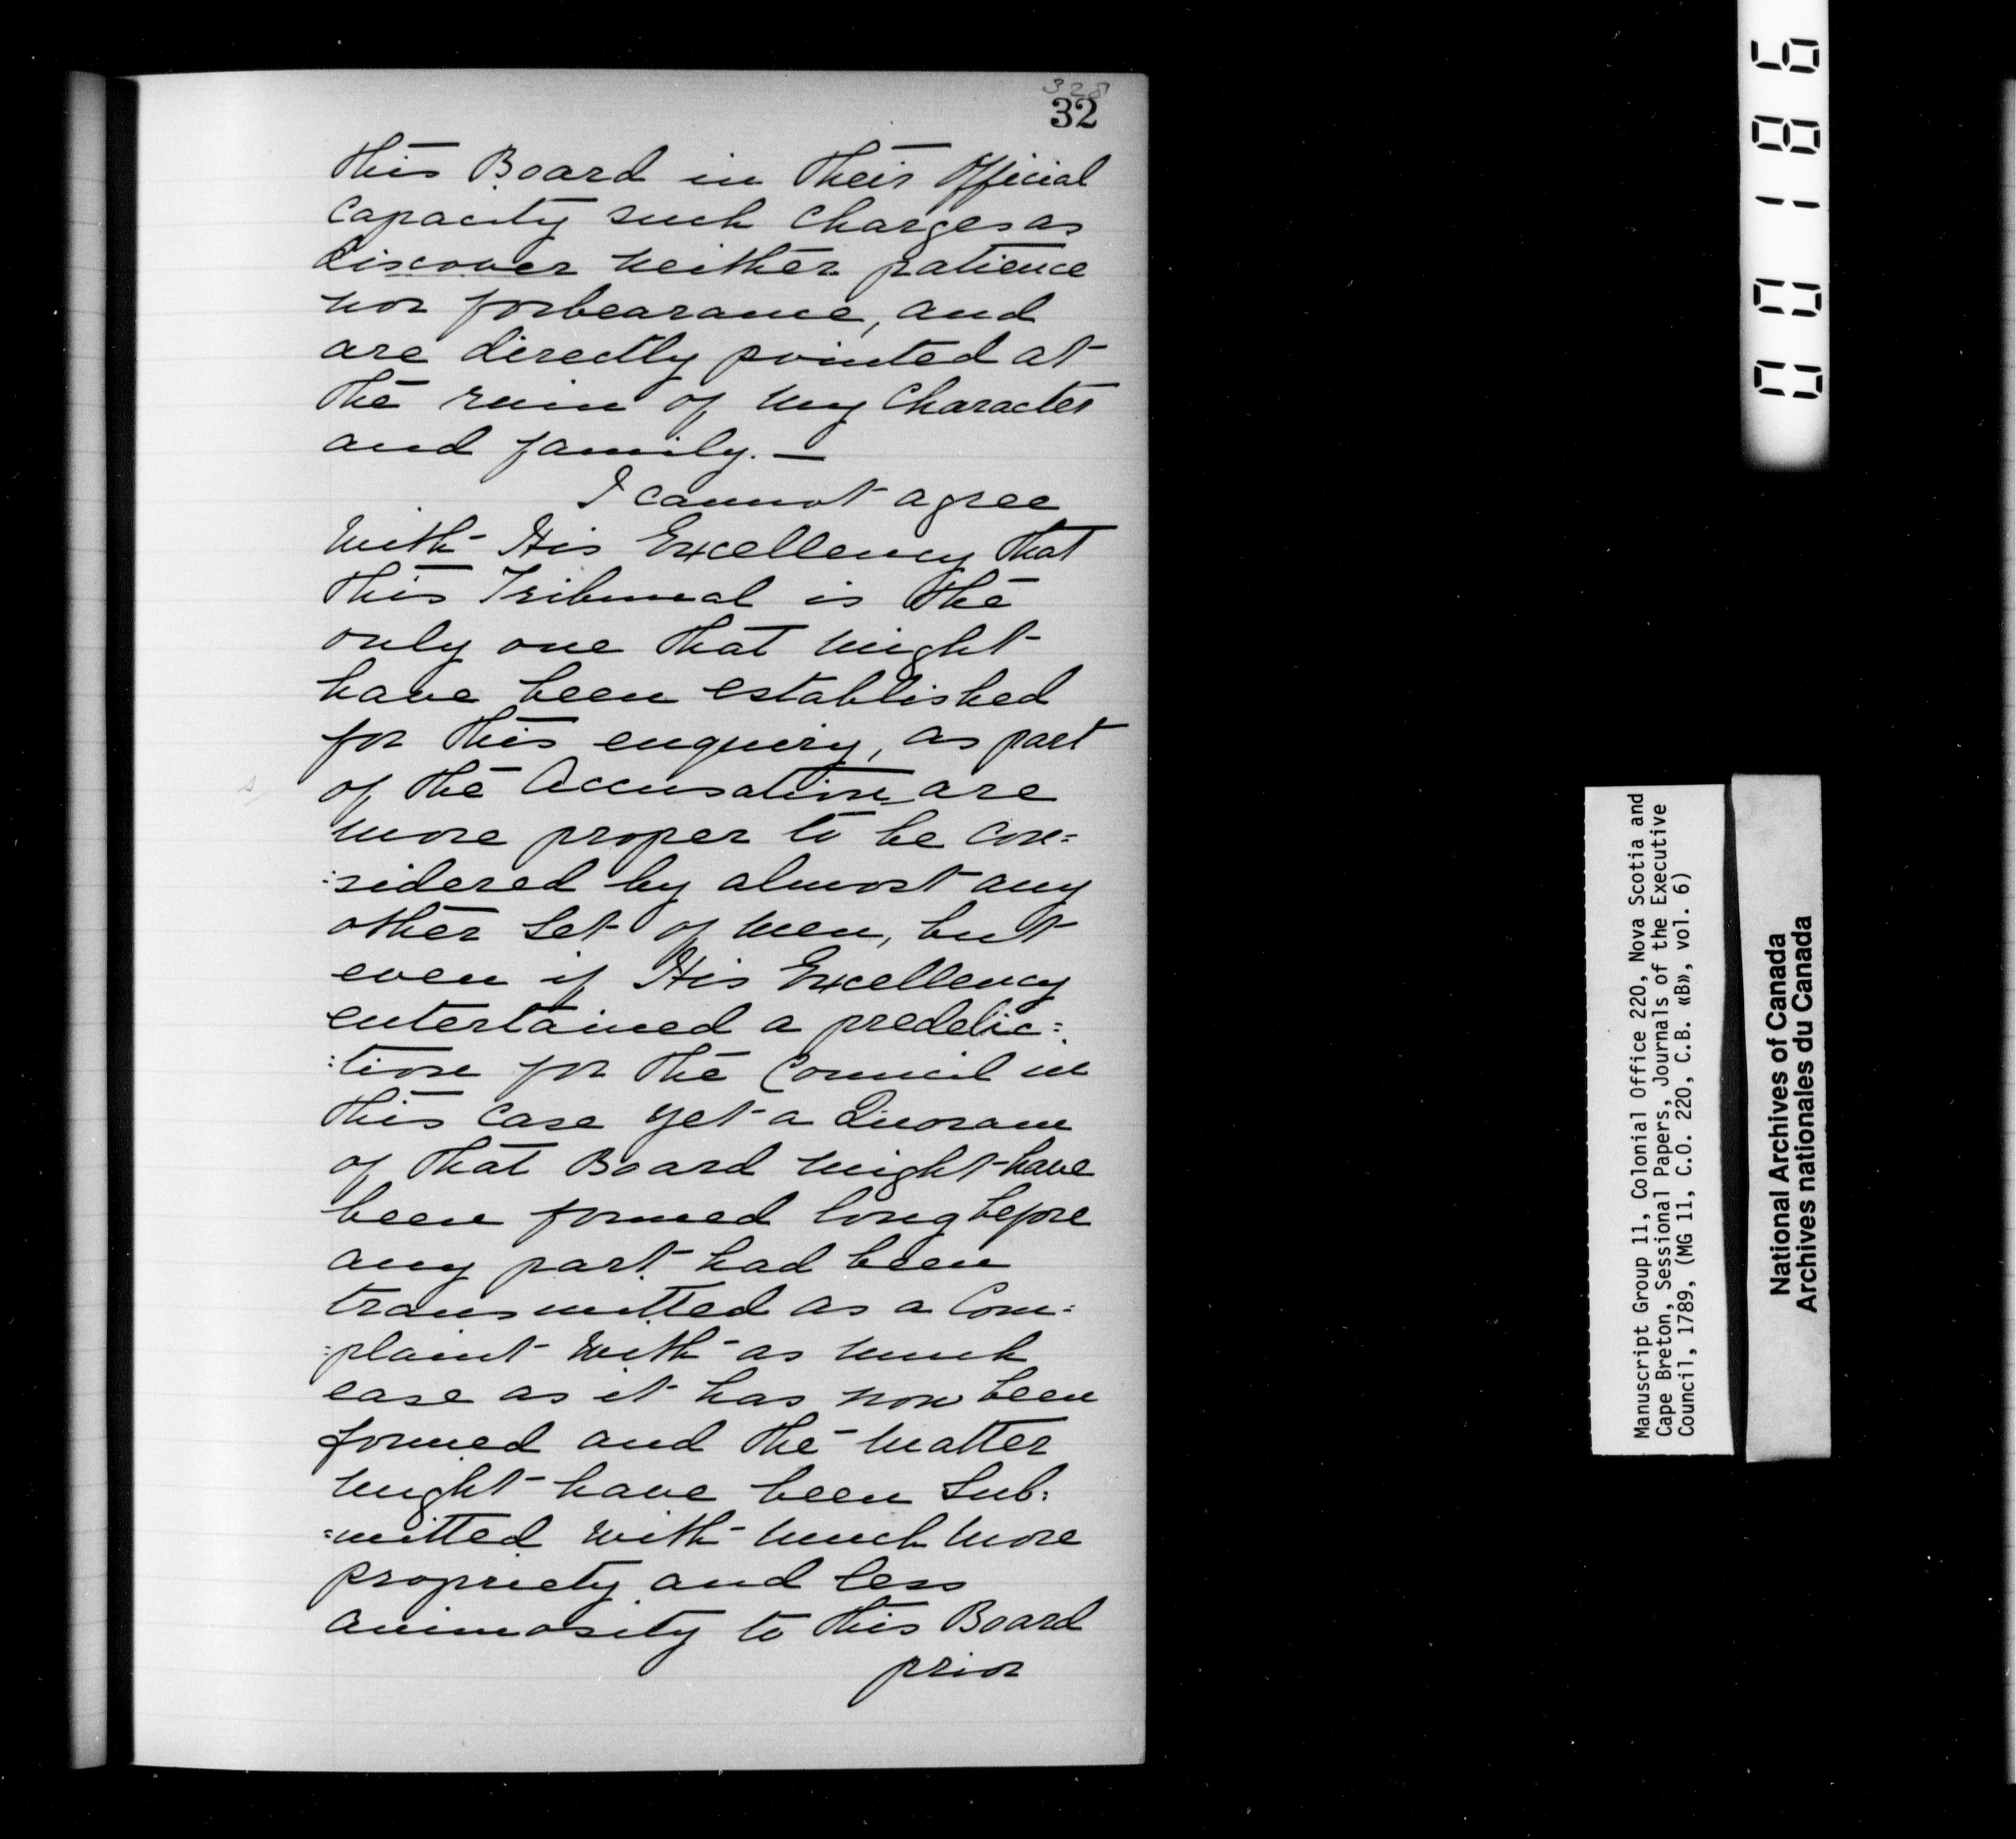 328
32
this Board in their Official
capacity such Charges as
discover neither patience
nor forbearance, and
are directly pointed at
the ruin of my Character
and family. —
I cannot agree
with His Excellency that
this Tribunal is the
only one that might
have been established
for this enquiry, as part
of the Accusation are
s/
more proper to be con=
:sidered by almost any
other Set of men, but
even if His Excellency
entertained a predelic=
:tion for the Council in
this case yet a Quoram
of that Board might have
been formed long before
any part had been
transmitted as a Com:
:plaint with as much
ease as it has now been
formed and the matter
might have been Sub:
=mitted with much more
propriety and less
animosity to this Board
prior
00186
Manuscript Group 11, Colonial Office 220, Nova Scotia and
Cape Breton, Sessional Papers, Journals of the Executive
Council, 1789, (MG 11, C.O. 220, C.B. «B», vol. 6)
National Archives of Canada
Archives nationales du Canada